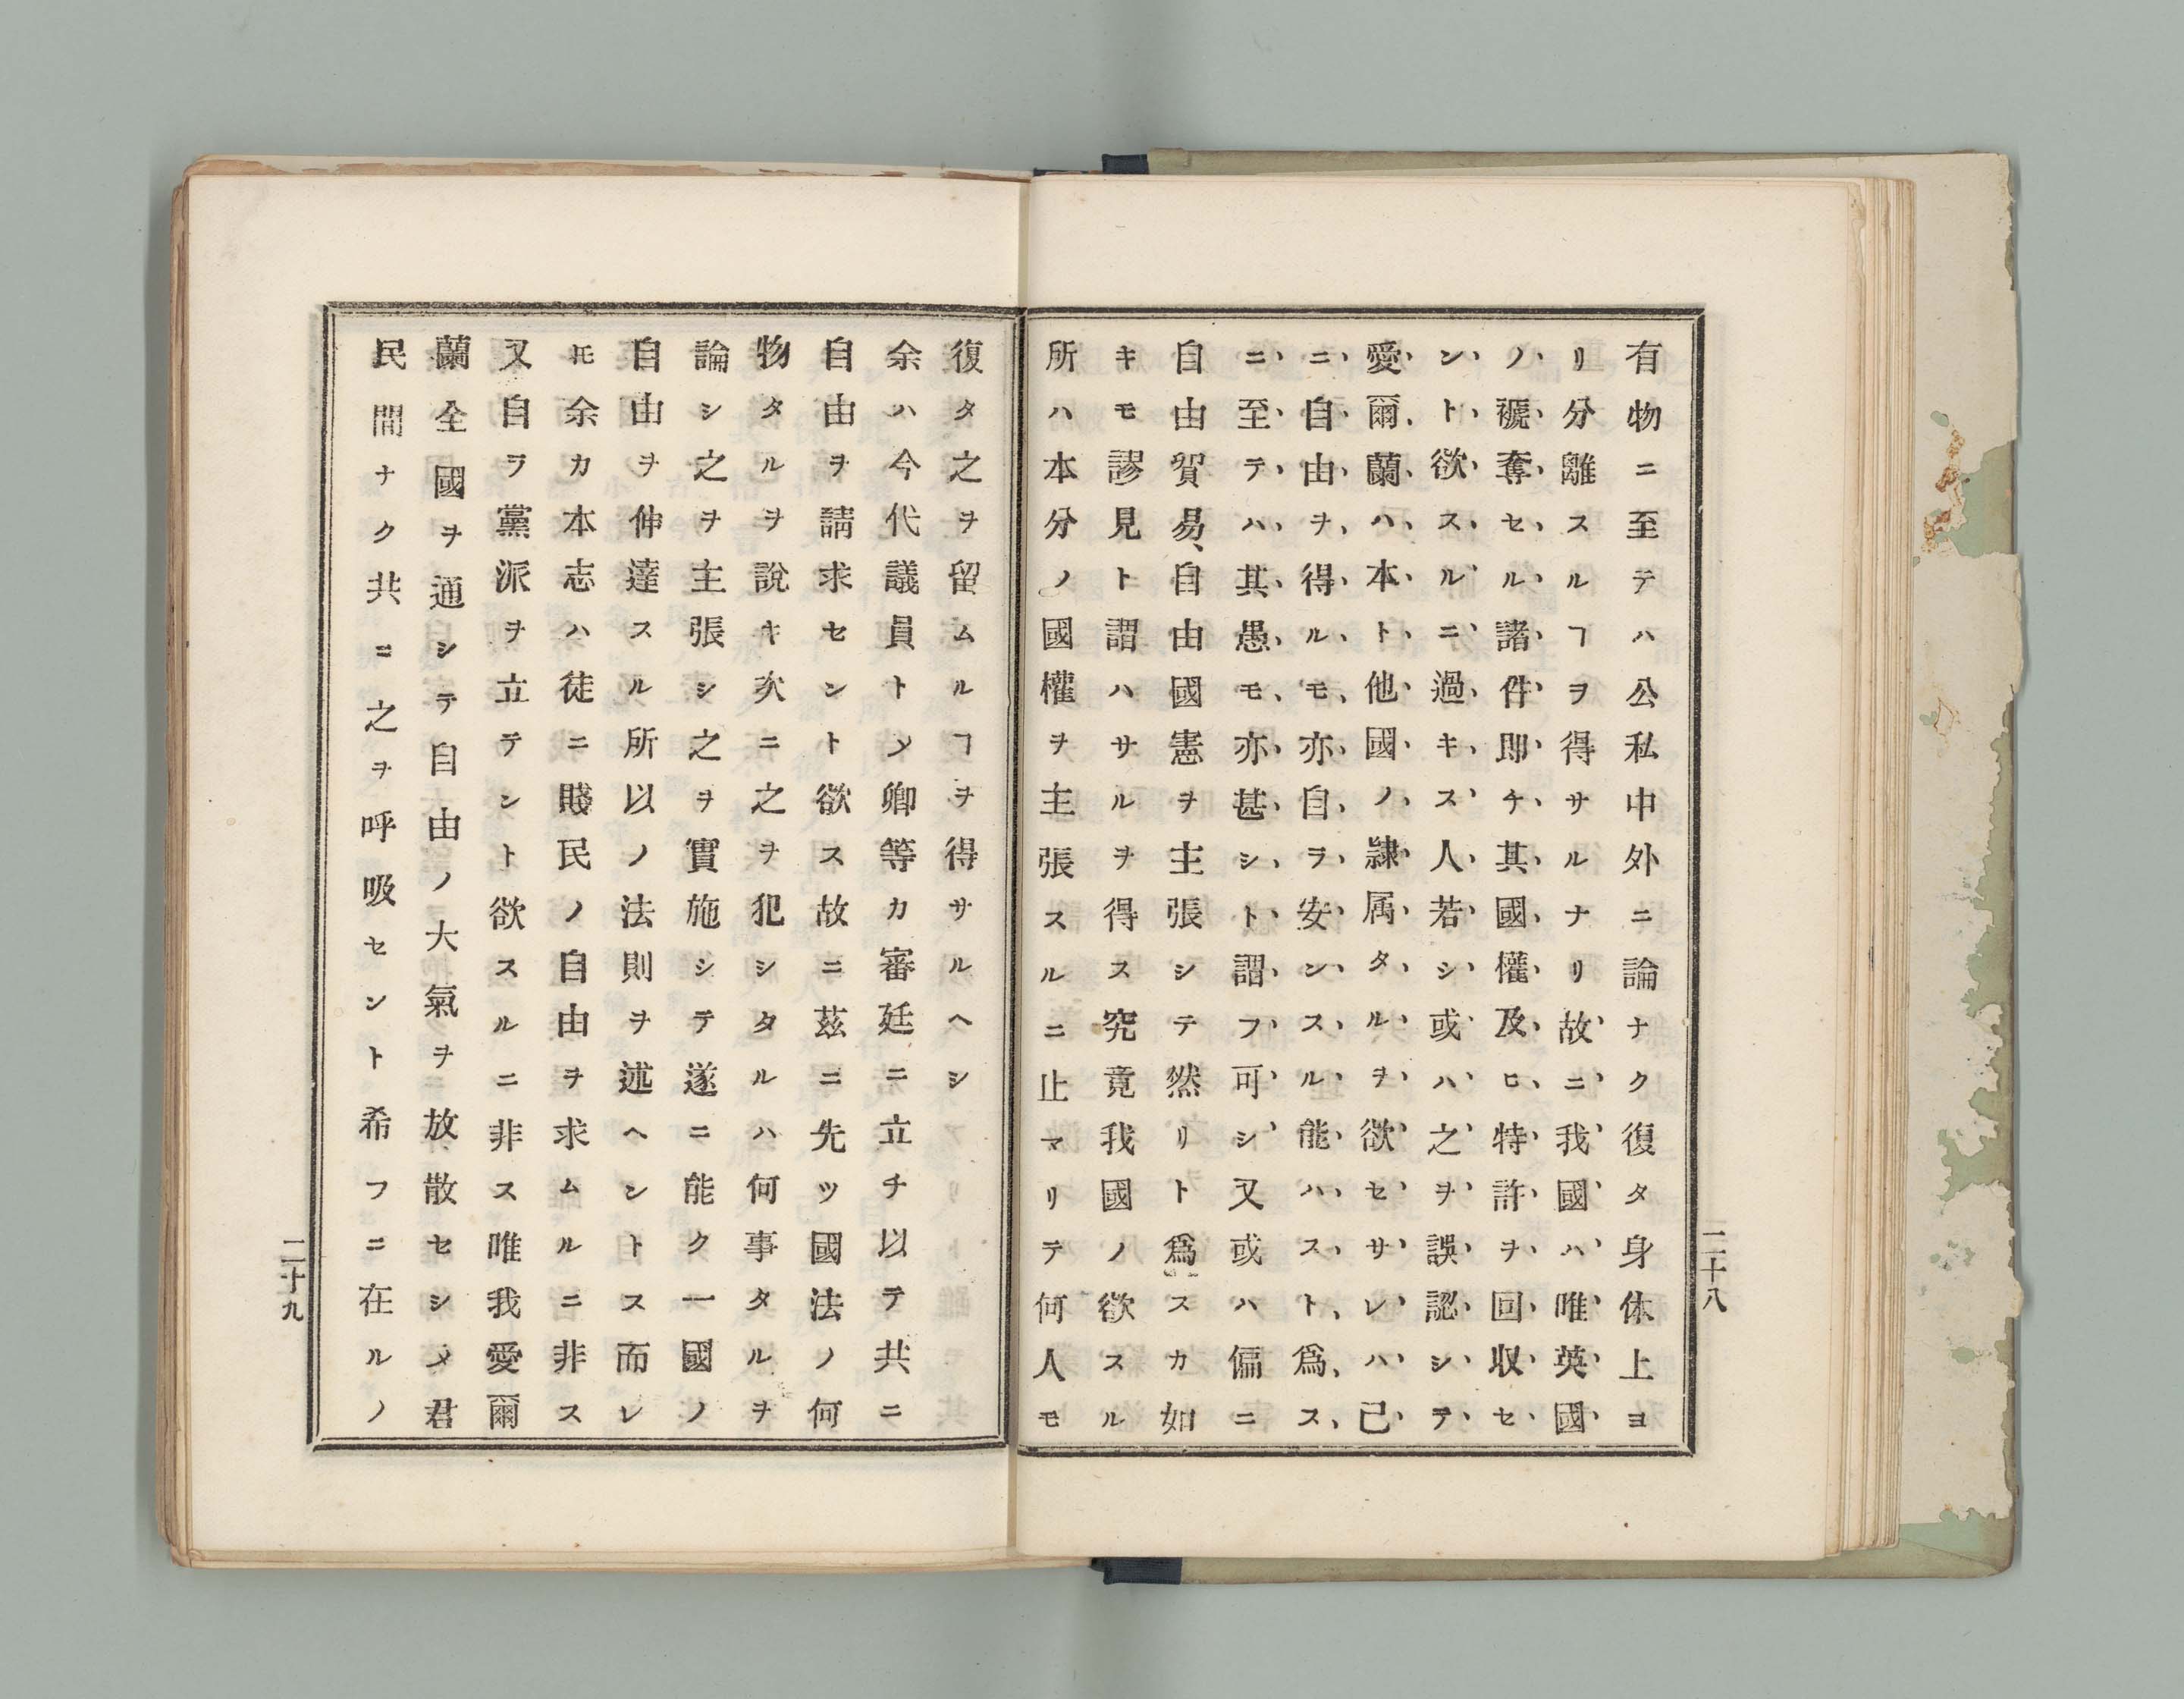 有物ニ至テハ公私中外ニ論ナク復タ身体上ヨ
リ分離スルヿヲ得サルナリ故ニ我國ハ唯英國
ノ褫奪セル諸件即チ其國權及ヒ特許ヲ回収セ
ント欲スルニ過キス人若シ或ハ之ヲ誤認シテ
愛爾蘭ハ本ト他國ノ隷属タルヲ欲セサレハ已
ニ自由ヲ得ルモ亦自ラ安ンスル能ハスト爲ス
ニ至テハ其愚モ亦甚シト謂フ可シ又或ハ偏ニ
自由貿易、自由國憲ヲ主張シテ然リト爲スカ如
キモ謬見ト謂ハサルヲ得ス究竟我國ノ欲スル
所ハ本分ノ國權ヲ主張スルニ止マリテ何人モ
二十八
復タ之ヲ留ムルヿヲ得サルヘシ
余ハ今代議員トメ卿等カ審廷ニ立チ以テ共ニ
自由ヲ請求セント欲ス故ニ茲ニ先ツ國法ノ何
物タルヲ說キ次ニ之ヲ犯シタルハ何事タルヲ
論シ之ヲ主張シ之ヲ實施シテ遂ニ能ク一國ノ
自由ヲ伸達スル所以ノ法則ヲ述ヘントス而レ
𪜈余カ本志ハ徒ニ賤民ノ自由ヲ求ムルニ非ス
又自ラ黨派ヲ立テント欲スルニ非ス唯我愛爾
蘭全國ヲ通シテ自由ノ大氣ヲ放散セシメ君
民間ナク共ニ之ヲ呼吸セント希フニ在ルノ
二十九